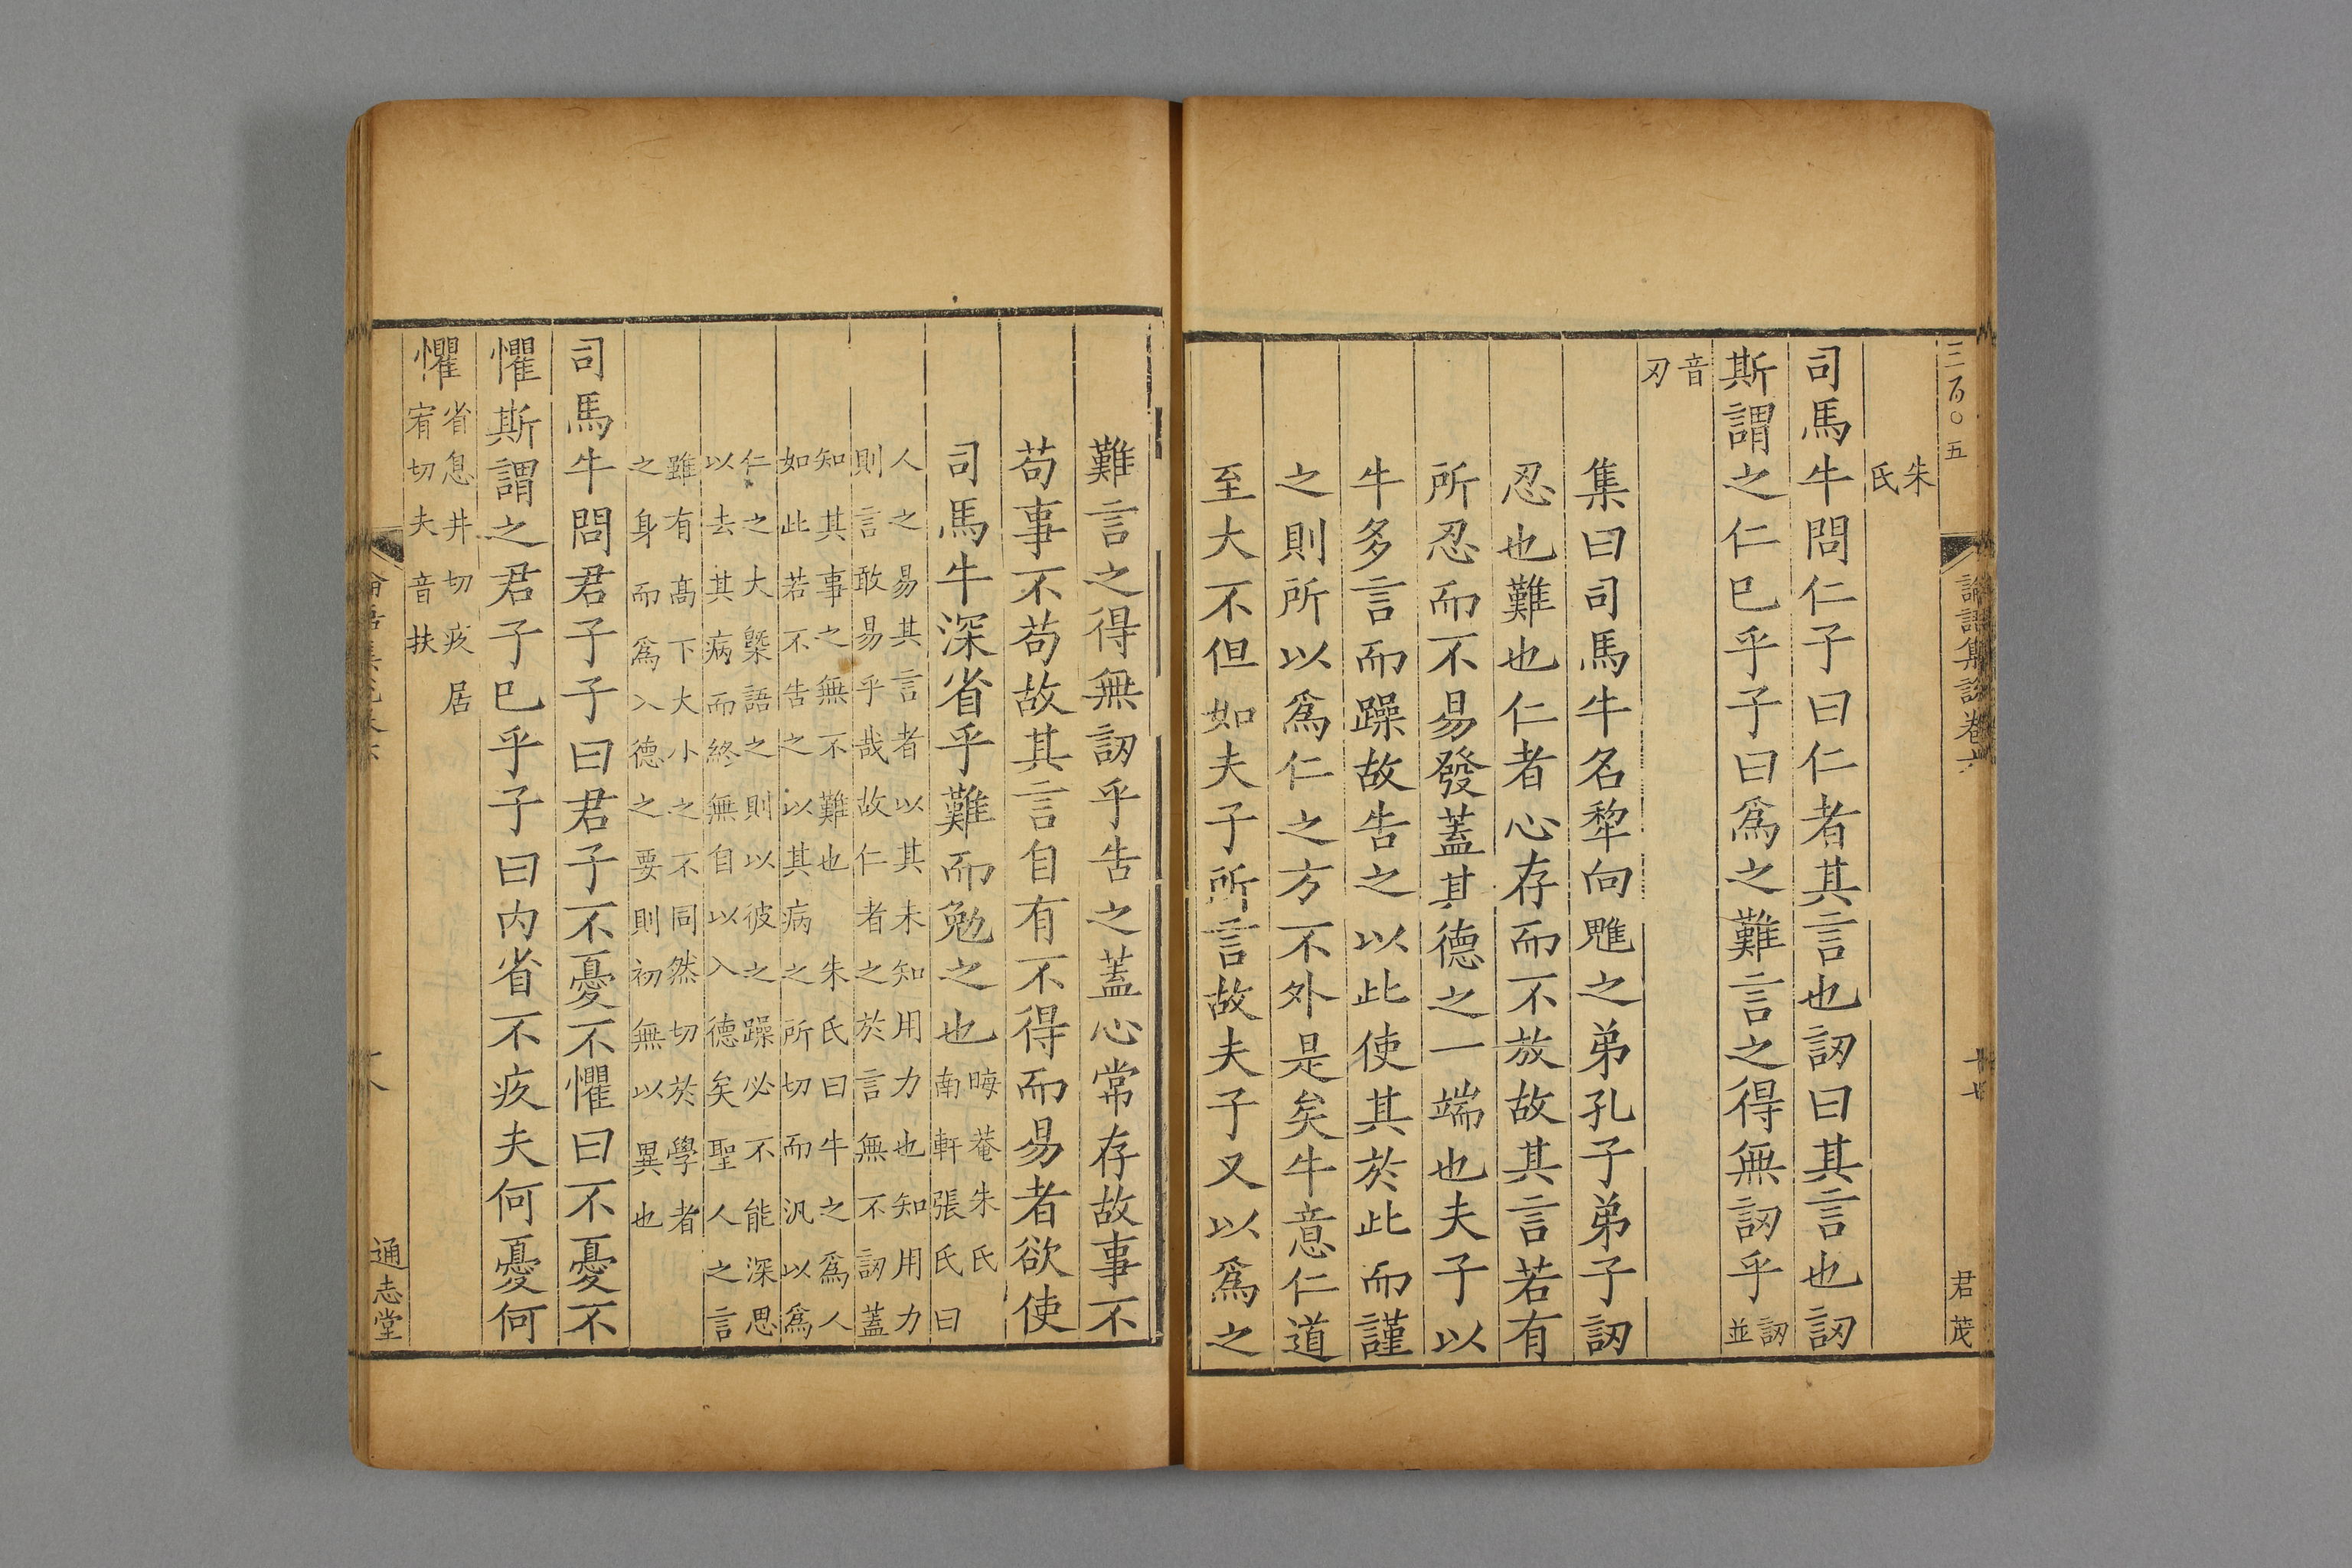 三百〇五
論語集說卷六
十七
君茂
朱
氏
司馬牛問仁子曰仁者其言也訒曰其言也訒
斯謂之仁已乎子曰爲之難言之得無訒乎訒
並
音
刃
集曰司馬牛名犂向魋之弟孔子弟子訒
忍也難也仁者心存而不放故其言若有
所忍而不易發蓋其德之一端也夫子以
牛多言而躁故告之以此使其於此而謹
之則所以爲仁之方不外是矣牛意仁道
至大不但如夫子所言故夫子又以爲之
難言之得無訒乎告之蓋心常存故事不
苟事不苟故其言自有不得而易者欲使
司馬牛深省乎難而勉之也晦菴朱氏
南軒張氏曰
人之易其言者以其未知用力也知用力
則言敢易乎哉故仁者之於言無不訒蓋
知其事之無不難也朱氏曰牛之爲人
如此若不告之以其病之所切而汎以爲
仁之大槩語之則以彼之躁必不能深思
以去其病而終無自以入德矣聖人之言
雖有髙下大小之不同然切於學者
之身而爲入德之要則初無以異也
司馬牛問君子子曰君子不憂不懼曰不憂不
懼斯謂之君子已乎子曰内省不疚夫何憂何
懼省息井切疚居
宥切夫音扶
通志堂